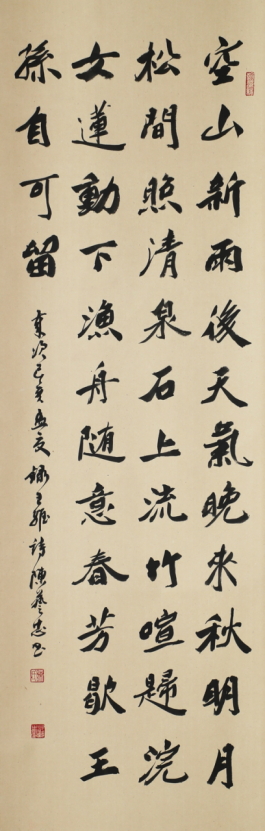 空山新雨後天氣晚来秋明月
松間照清泉石上流竹喧歸浣
女蓮動下漁舟随意春芳歇王
孫自可留
歲次己亥孟夏錄王維詩陳藝忠書